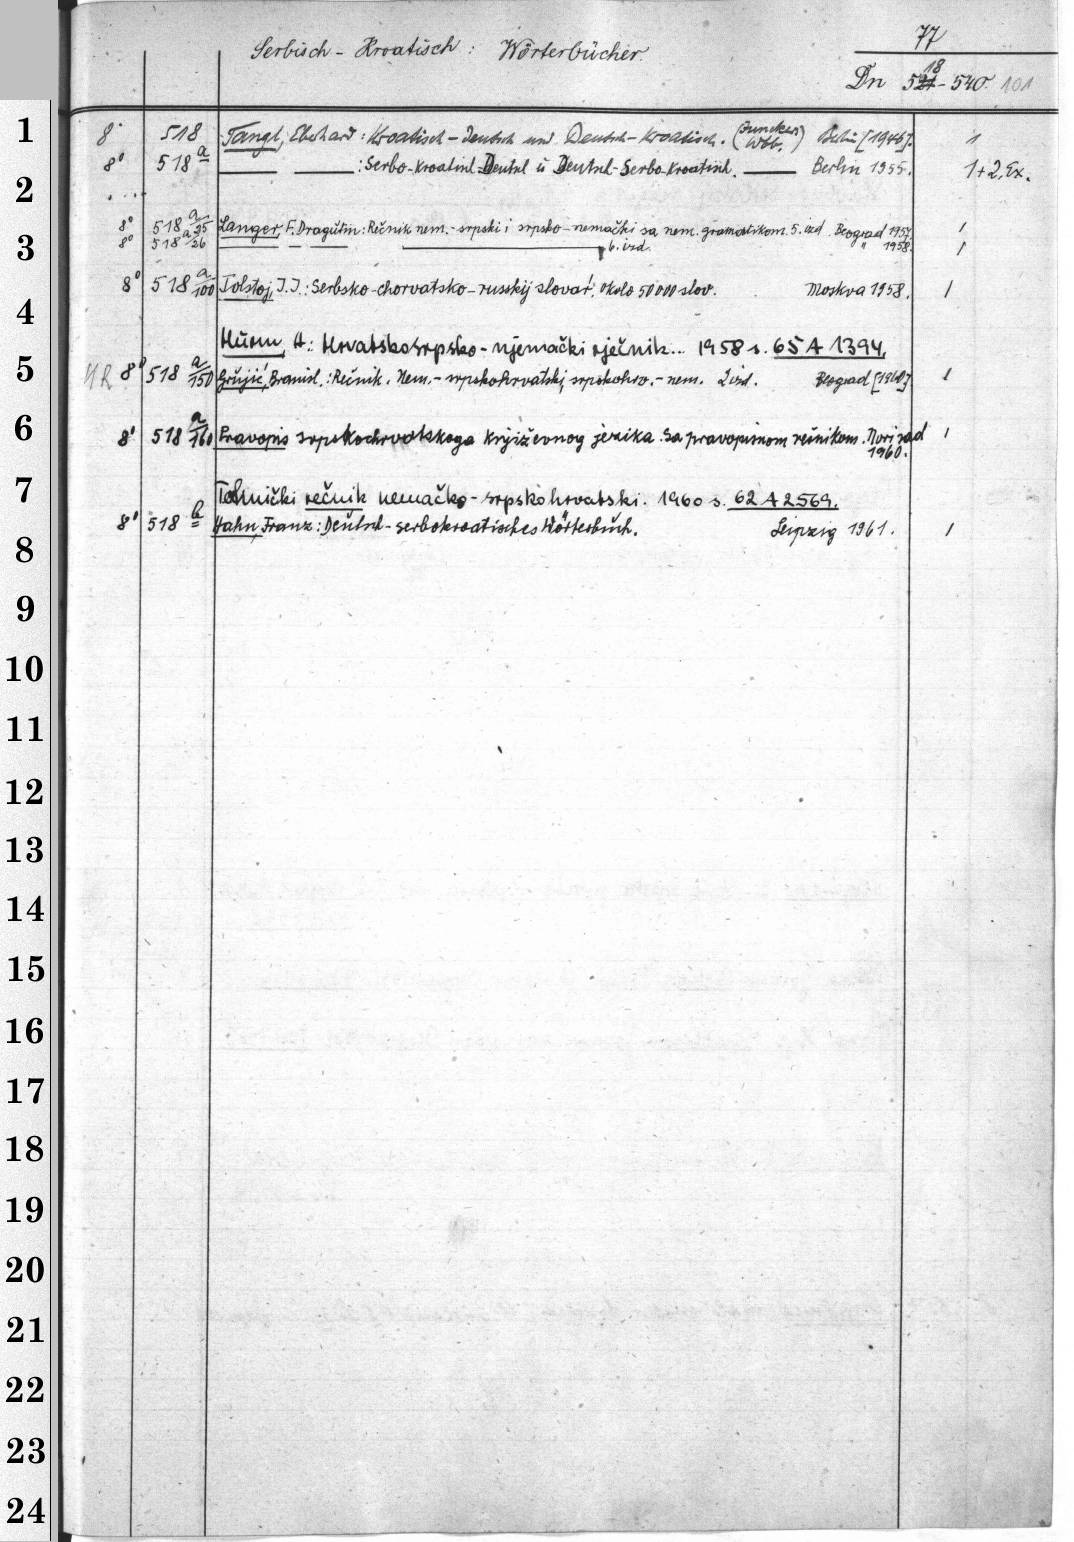 77
Serbisch - Kroatisch : Wörterbücher.
Dn 521 18 - 540. 101
1 8° 518 Tangl, Eberhard : Kroatisch - Deutsch und Deutsch - Kroatisch. (Junckers Wbb.) Berlin [1946]. 1
8° 518 a — — : Serbo-Kroatisch-Deutsch u Deutsch-Serbo-Kroatisch. — Berlin 1955. 1 + 2. Ex.
2 . . .
8° 518 a/25 Langer F. Dragutin : Rečnik nem. - srpski i srpsko - nemački sa nem. gramatikom. 5. izd Beograd 1957. 1
3 8° 518 a/26 — — — 6. izd. " 1958. 1
8° 518 a/100 Tolstoj, I. I. : Serbsko - chorvatsko - russkij slovaŕ, okolo 50 000 slov. Moskva 1958. 1
4
Hurm, A. : Hrvatskosrpsko - njemački rječnik... 1958 s. 65 A 1394.
5 HR 8° 518 a/150 Grujić, Branisl. : Rečnik. Nem. - srpskohrvatski, srpskohrv. - nem. 2 izd. Beograd [1960] 1
6 8° 518 a/160 Pravopis srpskohrvatskoga književnog jezika. Sa pravopisnom rečnikom. Novi sad 1960. 1
7 Tehnički rečnik nemačko - srpskohrvatski. 1960 s. 62 A 2569.
8° 518 b Hahn, Franz : Deutsch - serbokroatisches Wörterbuch. Leipzig 1961. 1
8
9
10
11
12
13
14
15
16
17
18
19
20
21
22
23
24